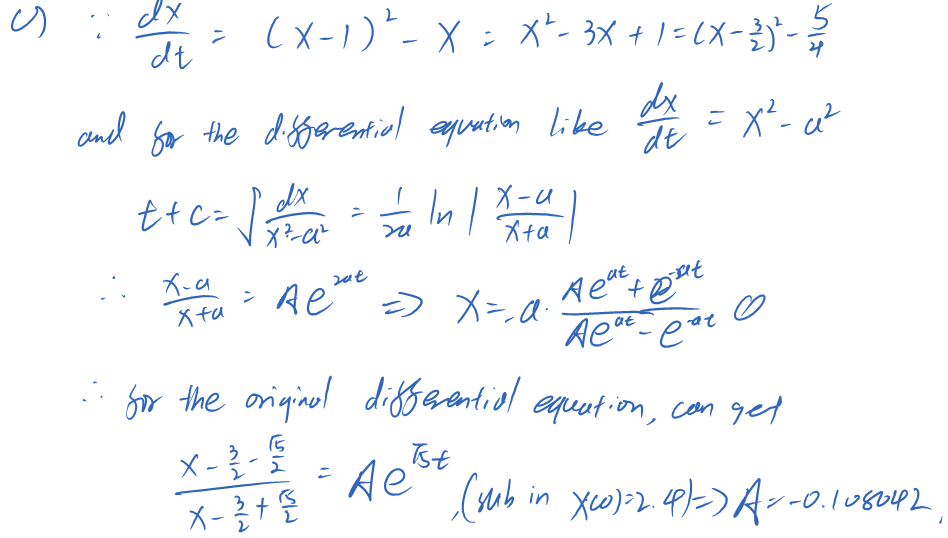 c) ∵ dx/dt = (x-1)² - x = x² - 3x + 1 = (x - 3/2)² - 5/4
and for the differential equation like dx/dt = x² - a²
t + c = ∫ dx/(x² - a²) = 1/2a ln | (x-a)/(x+a) |
∴ (x-a)/(x+a) = Ae^{2at} ⇒ x = -a · (Ae^{at} + e^{-at})/(Ae^{at} - e^{-at}) ①
∴ for the original differential equation, can get
(x - 3/2 - √5/2)/(x - 3/2 + √5/2) = Ae^{√5t}, (sub in x(0)=2.4) ⇒ A = -0.108042,